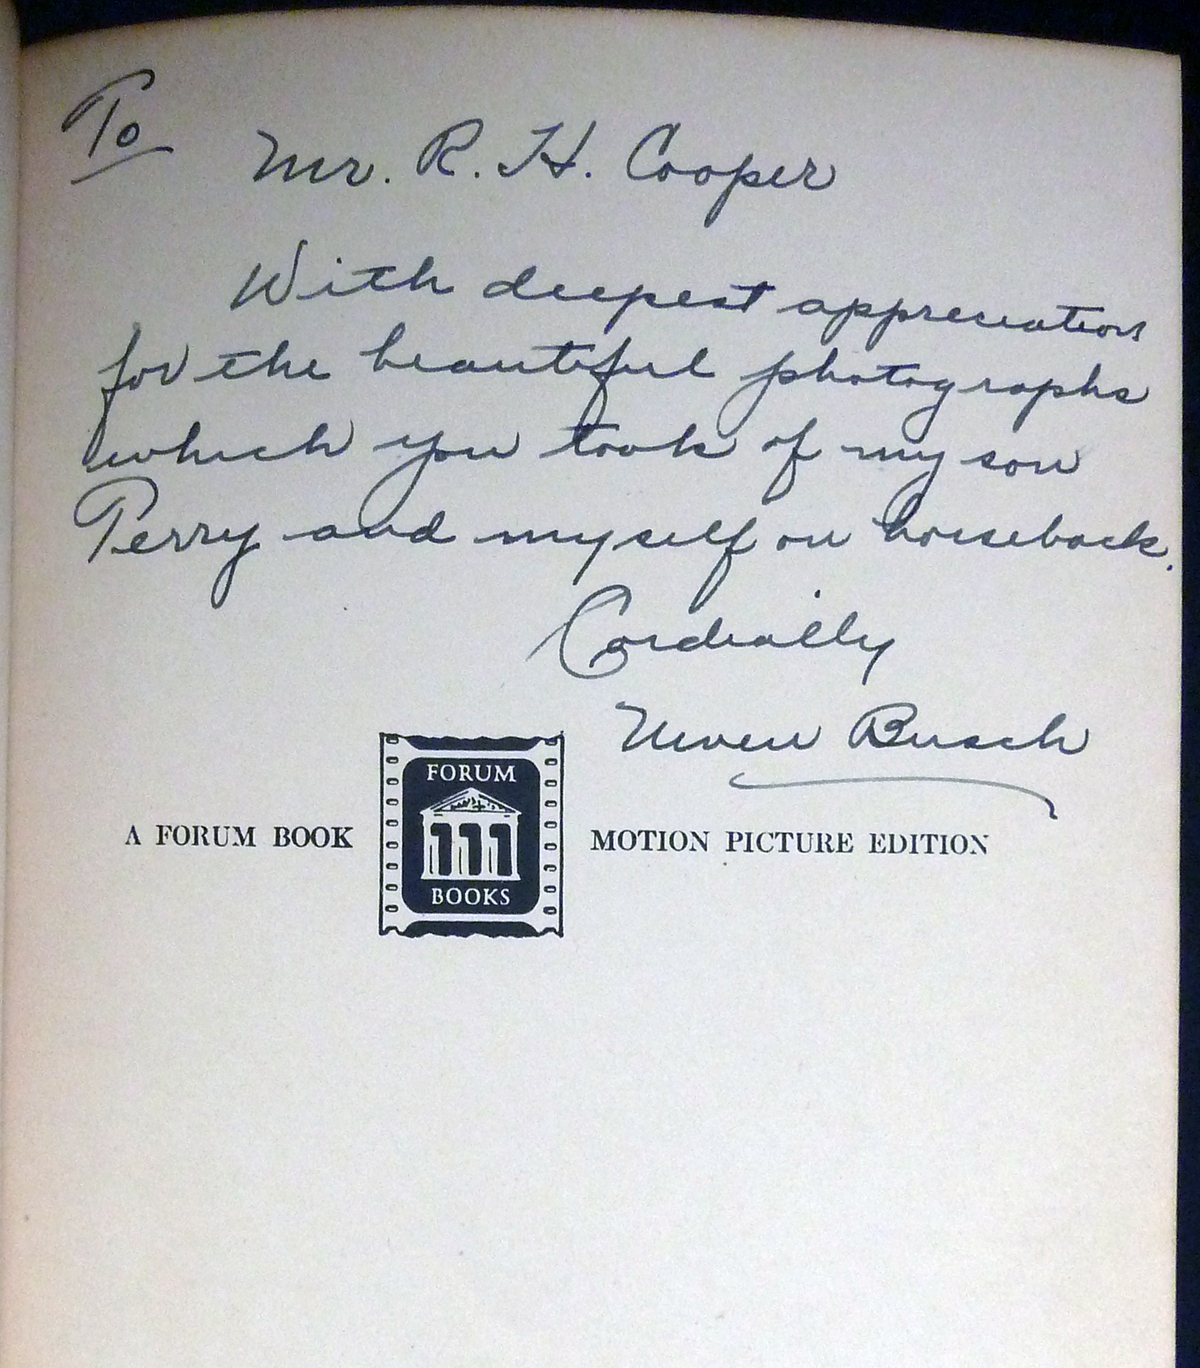 To
Mr. R. H. Cooper
With deepest appreciation
for the beautiful photographs
which you took of my son
Perry and myself on horseback.
Cordially
Niven Busch
FORUM
BOOKS
A FORUM BOOK
MOTION PICTURE EDITION